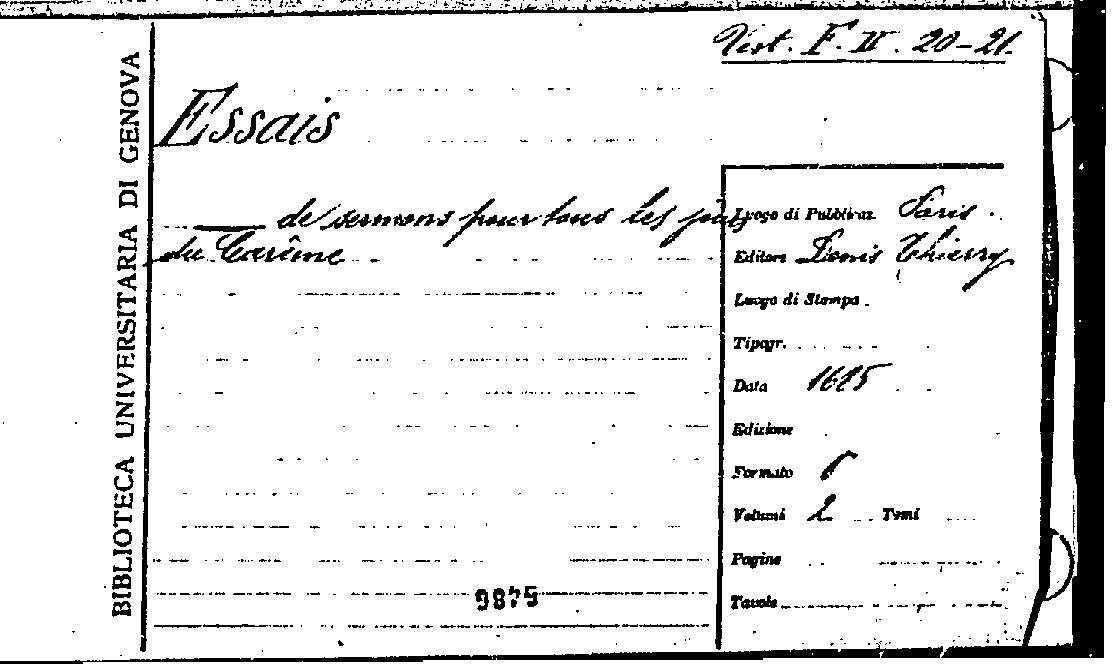 Vist. F. II. 20-21.
BIBLIOTECA UNIVERSITARIA DI GENOVA
Essais
—— de sermons pour tous les jours
du Carême
Luogo di Pubblicaz. Paris.
Editore Denis Thierry
Luogo di Stampa
Tipogr.
Data 1685
Edizione
Formato 8
Volumi 2 Tomi
Pagine
Tavole